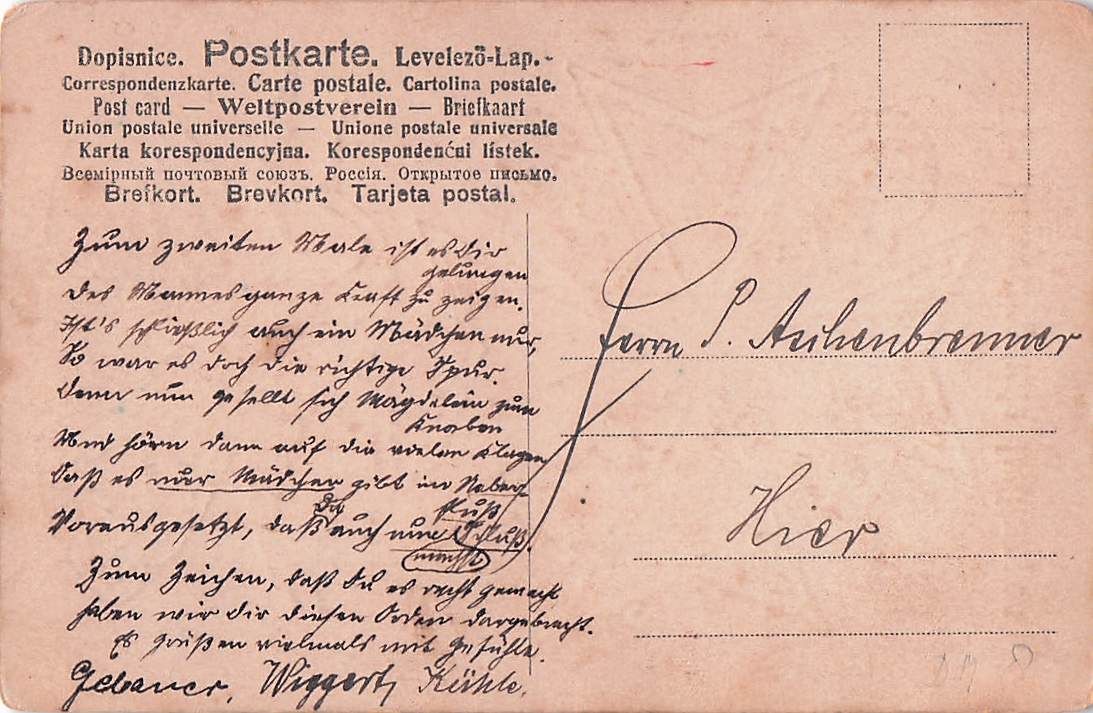 Dopisnice. Postkarte. Levelező-Lap.
Correspondenzkarte. Carte postale. Cartolina postale.
Post card — Weltpostverein — Briefkaart
Union postale universelle — Unione postale universale
Karta korespondencyjna. Korespondenćni lístek.
Всемірный почтовый союзъ. Россія. Открытое письмо.
Brefkort. Brevkort. Tarjeta postal.
Zum zweiten Male ist es Dir
gelungen
des Mannes ganze Kraft zu zeigen.
Ist's schließlich auch ein Mädchen nur,
So war es doch die richtige Spur.
Denn nun gesellt sich Mägdelein zum
Knaben
Und hörn dann auf die vielen Klagen
Daß es nur Mädchen gibt im Ueber-
fluß
Vorausgesetzt, daß Du auch nun Schluß
machst
Zum Zeichen, daß Du es recht gemacht
haben wir Dir diesen Orden dargebracht.
Es grüßen vielmals mit Gefühle
Gebauer, Wiggert, Kühle.
Herrn P. Aschenbrenner
Hier